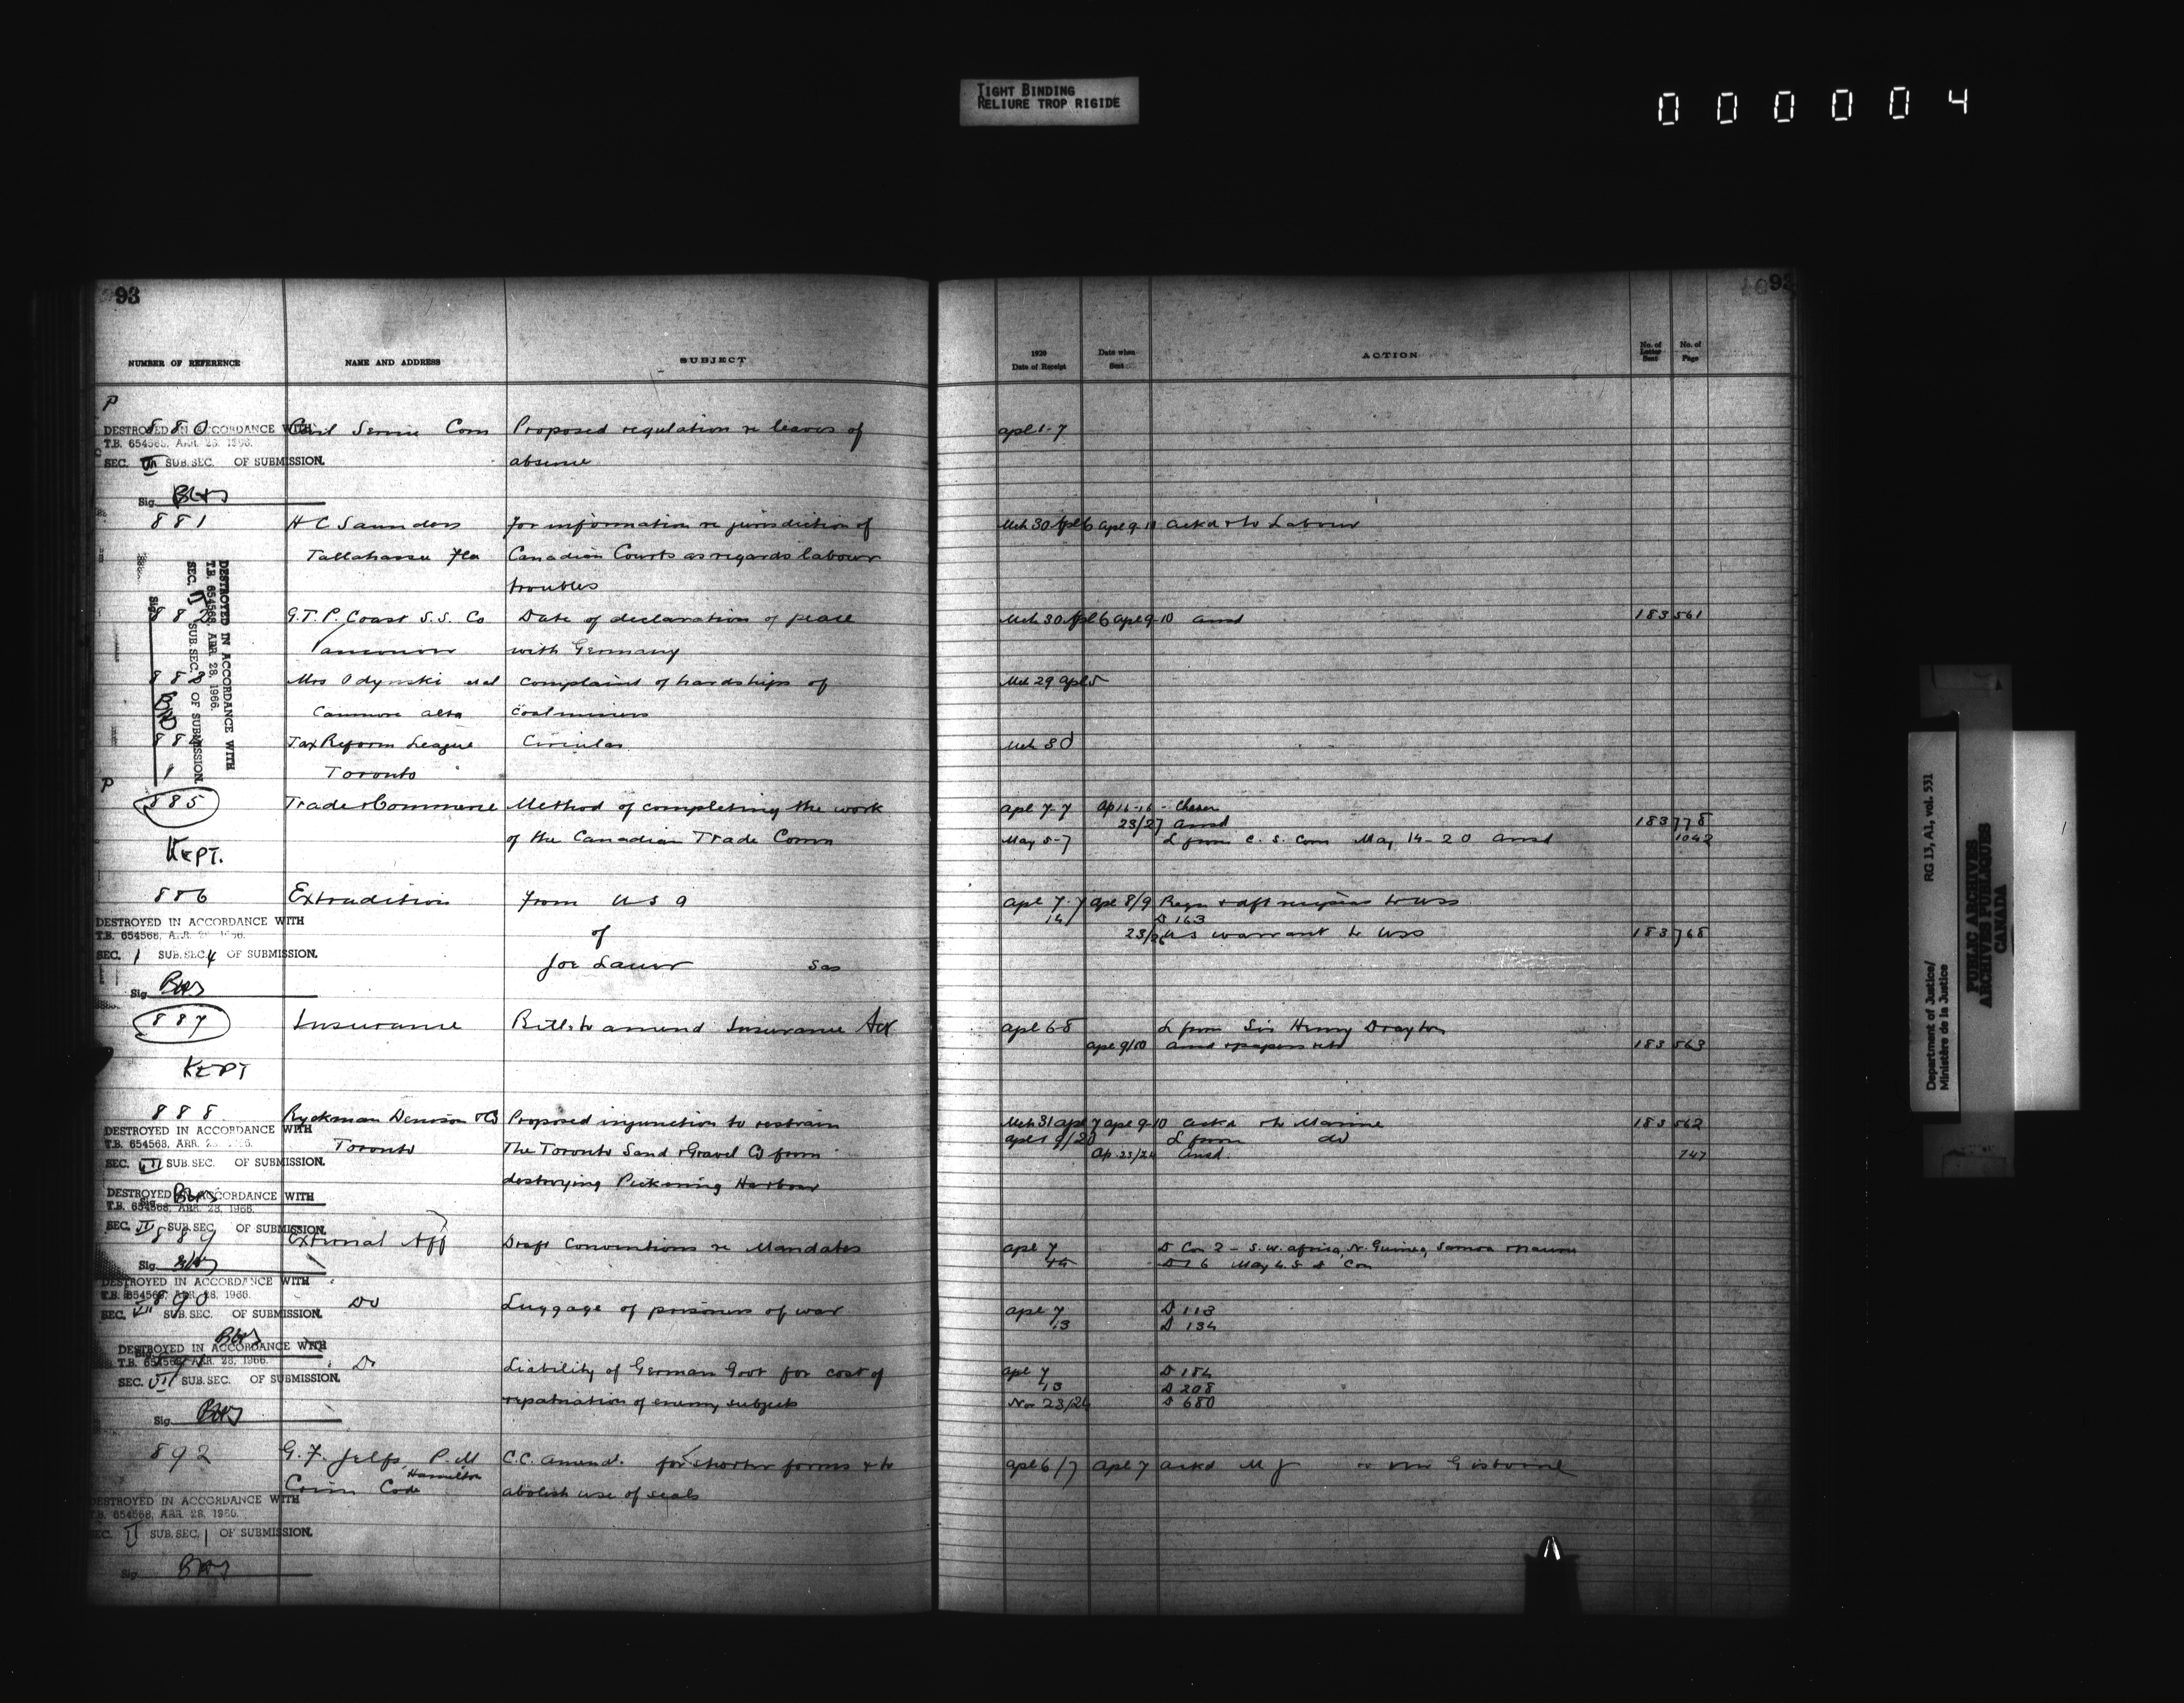 TIGHT BINDING
RELIURE TROP RIGIDE
000004
93
93
NUMBER OF REFERENCE NAME AND ADDRESS SUBJECT 1920 Date of Receipt Date when Sent ACTION No. of Letter Sent No. of Page
P
880 Civil Service Com Proposed regulation re leaves of apl 1-7
DESTROYED IN ACCORDANCE WITH
T.B. 654568, APR. 28, 1966.
absence
SEC. VII SUB.SEC. OF SUBMISSION.
Sig.
881 H C Saunders for information re jurisdiction of Mch 30 Apl 6 apl 9-10 ackd & to Labour
Tallahassee Fla Canadian Courts as regards labour
troubles
DESTROYED IN ACCORDANCE WITH
T.B. 654568, APR. 28, 1966.
SEC. II SUB.SEC. OF SUBMISSION.
Sig.
882 G.T.P. Coast S.S. Co Date of declaration of peace Mch 30 Apl 6 apl 9-10 ansd 183 561
Vancouver with Germany
883 Mrs Odynski et al complaint of hardships of Mch 29 apl 5
Canmore alta coalminers
884 Tax Reform League Circular Mch 30
Toronto
P
885 Trade & Commerce Method of completing the work apl 7-7 ap 16-16 -
23/27 ansd 183 778
of the Canadian Trade Comn May 5-7 L from C. S. Com May 14-20 ansd 1042
KEPT.
886 Extradition from U S A apl 7-7 apl 8/9
14 D 163
DESTROYED IN ACCORDANCE WITH
T.B. 654568, APR. 28, 1966.
of 23/26 US warrant to USS 183 768
SEC. 1 SUB.SEC. 4 OF SUBMISSION.
Joe Sas
Sig.
887 Insurance Bill to amend Insurance Act apl 6-8 L from Sir Henry Drayton
apl 9/10 ansd & papers retd 183 563
KEPT
888 Ryckman Denison & Co Proposed injunction to restrain Mch 31 apl 7 apl 9-10 ackd & to Marine 183 562
apl 19/20 L from do
DESTROYED IN ACCORDANCE WITH
T.B. 654568, APR. 28, 1966.
Toronto The Toronto Sand & Gravel Co from Ap 23/24 ansd. 747
SEC. VII SUB.SEC. OF SUBMISSION.
destroying Pickering Harbour
Sig.
DESTROYED IN ACCORDANCE WITH
T.B. 654568, APR. 28, 1966.
SEC. IV SUB.SEC. OF SUBMISSION.
889 External Aff Draft Conventions re Mandates apl 7 D Con 2 - S.W. africa, N. Guinea, Samoa & Nauru
Sig.
DESTROYED IN ACCORDANCE WITH
T.B. 654568, APR. 28, 1966.
890 Do Luggage of prisoners of war apl 7 D 113
13 D 134
SEC. VII SUB.SEC. OF SUBMISSION.
Sig.
DESTROYED IN ACCORDANCE WITH
T.B. 654568, APR. 28, 1966.
891 Do Liability of German Govt for cost of apl 7 D 184
13 D 208
SEC. VII SUB.SEC. OF SUBMISSION.
repatriation of enemy subjects Nov 23/24 D 680
Sig.
892 G. F. Jelfs, P.M C.C. amend. for shorter forms & to apl 6/7 apl 7 ackd M J & Mr Gisborne
Hamilton
Crim Code abolish use of seals
DESTROYED IN ACCORDANCE WITH
T.B. 654568, APR. 28, 1966.
SEC. II SUB.SEC. 1 OF SUBMISSION.
Sig.
Department of Justice/ RG 13, A1, vol. 531
Ministère de la Justice
PUBLIC ARCHIVES
ARCHIVES PUBLIQUES
CANADA